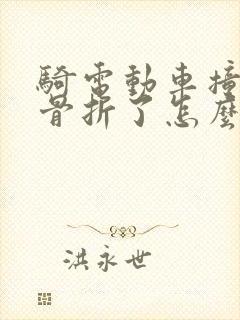 騎電動車撞
骨折了怎麼
洪永世